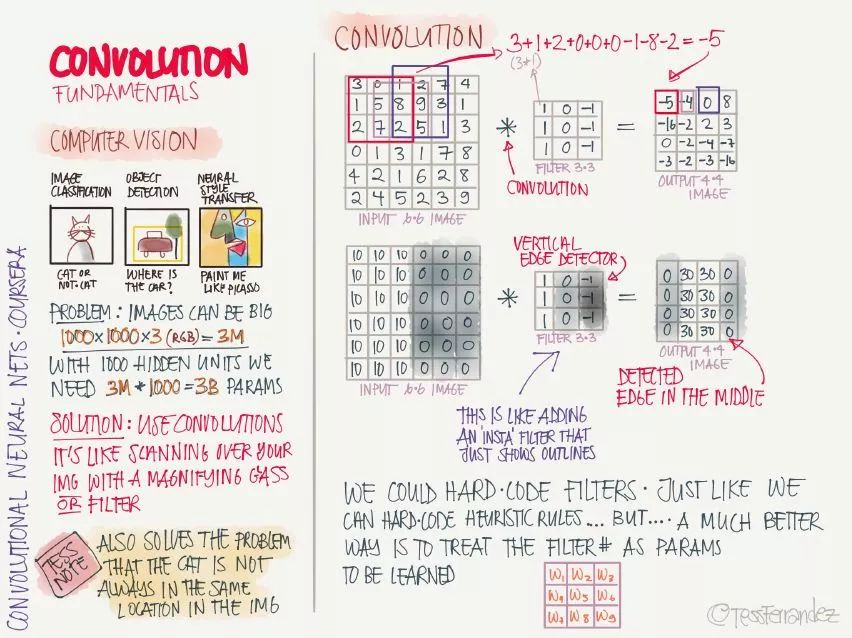 CONVOLUTION
FUNDAMENTALS
COMPUTER VISION
IMAGE CLASSIFICATION
OBJECT DETECTION
NEURAL STYLE TRANSFER
CAT OR NOT-CAT
WHERE IS THE CAR?
PAINT ME LIKE PICASSO
PROBLEM: IMAGES CAN BE BIG
1000×1000×3 (RGB) = 3M
WITH 1000 HIDDEN UNITS WE
NEED 3M * 1000 = 3B PARAMS
SOLUTION: USE CONVOLUTIONS
IT'S LIKE SCANNING OVER YOUR
IMG WITH A MAGNIFYING GASS
OR FILTER
TESS NOTE
ALSO SOLVES THE PROBLEM
THAT THE CAT IS NOT
ALWAYS IN THE SAME
LOCATION IN THE IMG
CONVOLUTIONAL NEURAL NETS · COURSERA
CONVOLUTION
3+1+2+0+0+0-1-8-2=-5
(3*1)
3 0 1 2 7 4
1 5 8 9 3 1
2 7 2 5 1 3
0 1 3 1 7 8
4 2 1 6 2 8
2 4 5 2 3 9
INPUT 6·6 IMAGE
*
CONVOLUTION
1 0 -1
1 0 -1
1 0 -1
FILTER 3·3
=
-5 -4 0 8
-16 -2 2 3
0 -2 -4 -7
-3 -2 -3 -16
OUTPUT 4·4
IMAGE
10 10 10 0 0 0
10 10 10 0 0 0
10 10 10 0 0 0
10 10 10 0 0 0
10 10 10 0 0 0
10 10 10 0 0 0
INPUT 6·6 IMAGE
*
VERTICAL
EDGE DETECTOR
1 0 -1
1 0 -1
1 0 -1
FILTER 3·3
=
0 30 30 0
0 30 30 0
0 30 30 0
0 30 30 0
OUTPUT 4·4
IMAGE
DETECTED
EDGE IN THE MIDDLE
THIS IS LIKE ADDING
AN 'INSTA' FILTER THAT
JUST SHOWS OUTLINES
WE COULD HARD-CODE FILTERS · JUST LIKE WE
CAN HARD-CODE HEURISTIC RULES.... BUT.... A MUCH BETTER
WAY IS TO TREAT THE FILTER # AS PARAMS
TO BE LEARNED
W1 W2 W3
W4 W5 W6
W7 W8 W9
©TessFerrandez